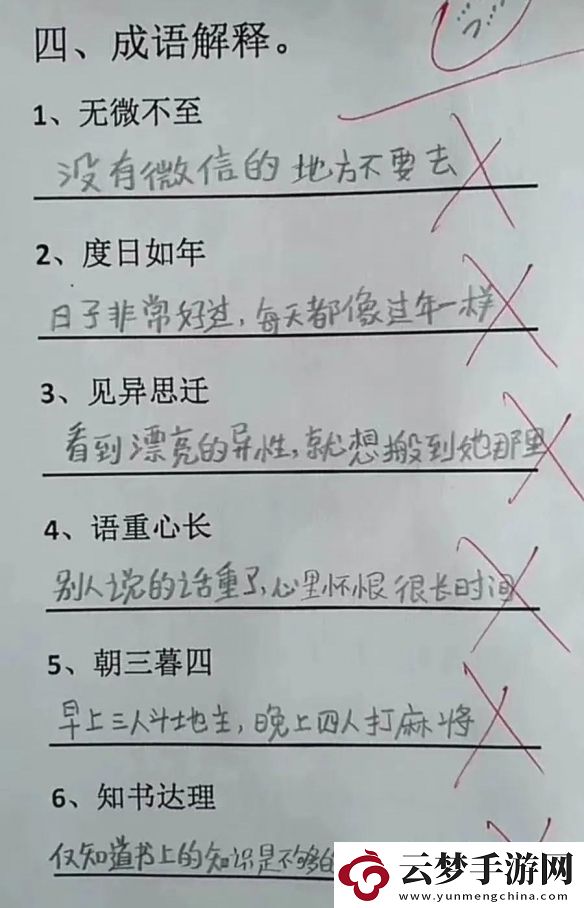 四、成语解释。
1、无微不至
没有微信的地方不要去
2、度日如年
日子非常好过，每天都像过年一样
3、见异思迁
看到漂亮的异性，就想搬到她那里
4、语重心长
别人说的话重了，心里怀恨很长时间
5、朝三暮四
早上三人斗地主，晚上四人打麻将
6、知书达理
仅知道书上的知识是不够的
云梦手游网
www.yunmengchina.com